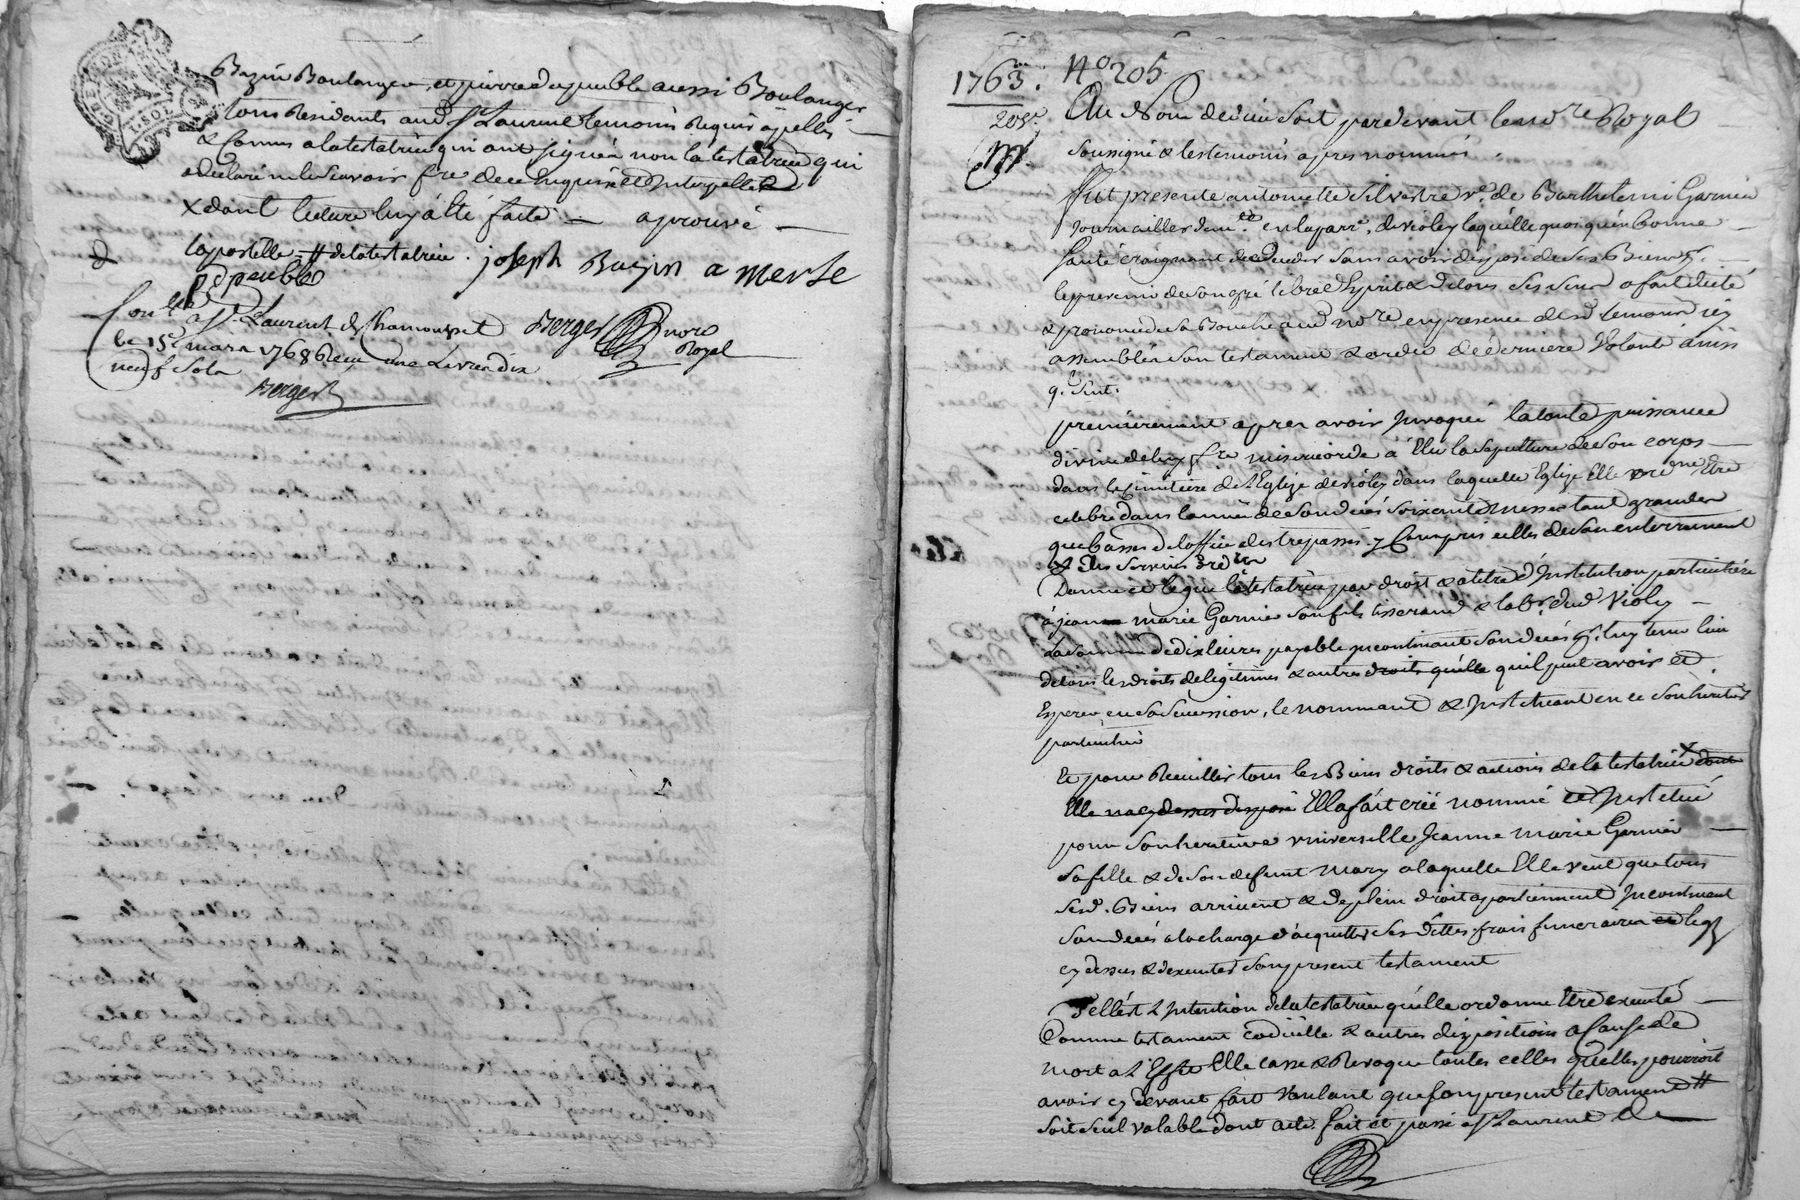 Bazin Boulanger, et pierre depeuble aussi Boulanger
tous Residants aud St Laurent temoins Requis apellés
& Connus a la testatrice qui ont signé a non la testatrice qui
a declaré ne le Scavoir fre de ce Enquise et Interpellée
x dont lecture luy á été faite — aprouvé —
lapostille # de la testatrice . joseph Bazin a merle
p depeuble
Conlle a St Laurent de Chamousset Berger nore
Royal
le 15e mars 1768 Reçu une Livre dix
neuf Sols
Berger
1763. No 205
205e
Au Nom de dieu soit pardevant le nore Royal
soussigné & les temoins apres nommés.
fut presente antoinette Silvestre ve. de Barthelemi Garnier
Journaillier demte. en la parr. de violey laquelle quoi qu'en bonne
Santé craignant de deceder sans avoir disposé de ses Biens
de son gré libre d'Esprit & de tous ses sens a fait dicté
& prononcé de sa Bouche aud nore. en presence desd temoins icy
assemblés son testament & ordre de derniere Volonté ainsi
q. suit.
premierement apres avoir Invoqué la toute puissance
divine de luy fre misericorde á Elu la sepulture de son corps
dans le cimetiere de l'Eglize de violey dans laquelle Eglize Elle ordne Etre
celebré dans lannée de son decés soixante messes tant grandes
que basses de l'office des trepassés y Compris celles de son enterrement
& Des Services
Donne et legue la testatrice par droit & a titre d'Institution particuliere
á jean marie Garnier son fils tisserand & labr. dud Violey
la somme de dix livres payable incontinant son decés pr. luy tenir lieu
de tous les droits de legitimes & autres droits quelle quil peut avoir et
Esperer en sa sucession, le nommant & Instituant en ce son heritier
particulier
Et pour Recuillir tous les Biens droits & actions de la testatrice x dont
Elle na cy dessus disposé Elle a fait créé nommé et Institué
pour son heritiere universelle Jeanne marie Garnier
sa fille & de son defunt mary a laquelle Elle veut que tous
sesd. Biens arrivent & de plein droit apartiennent Incontinent
son decés a la charge d'acquitter ses dettes frais funeraires et legs
cy dessus & d'executer son present testament
Telle est l'Intention de la testatrice quelle ordonne Etre executé
Comme testament codicille & autres dispositions a Cause de
mort a l'Effet Elle casse & Revoque toutes celles quelles pourroit
avoir cy devant fait voulant que son present testament #
soit seul valable dont acte. fait et passé a St Laurent de